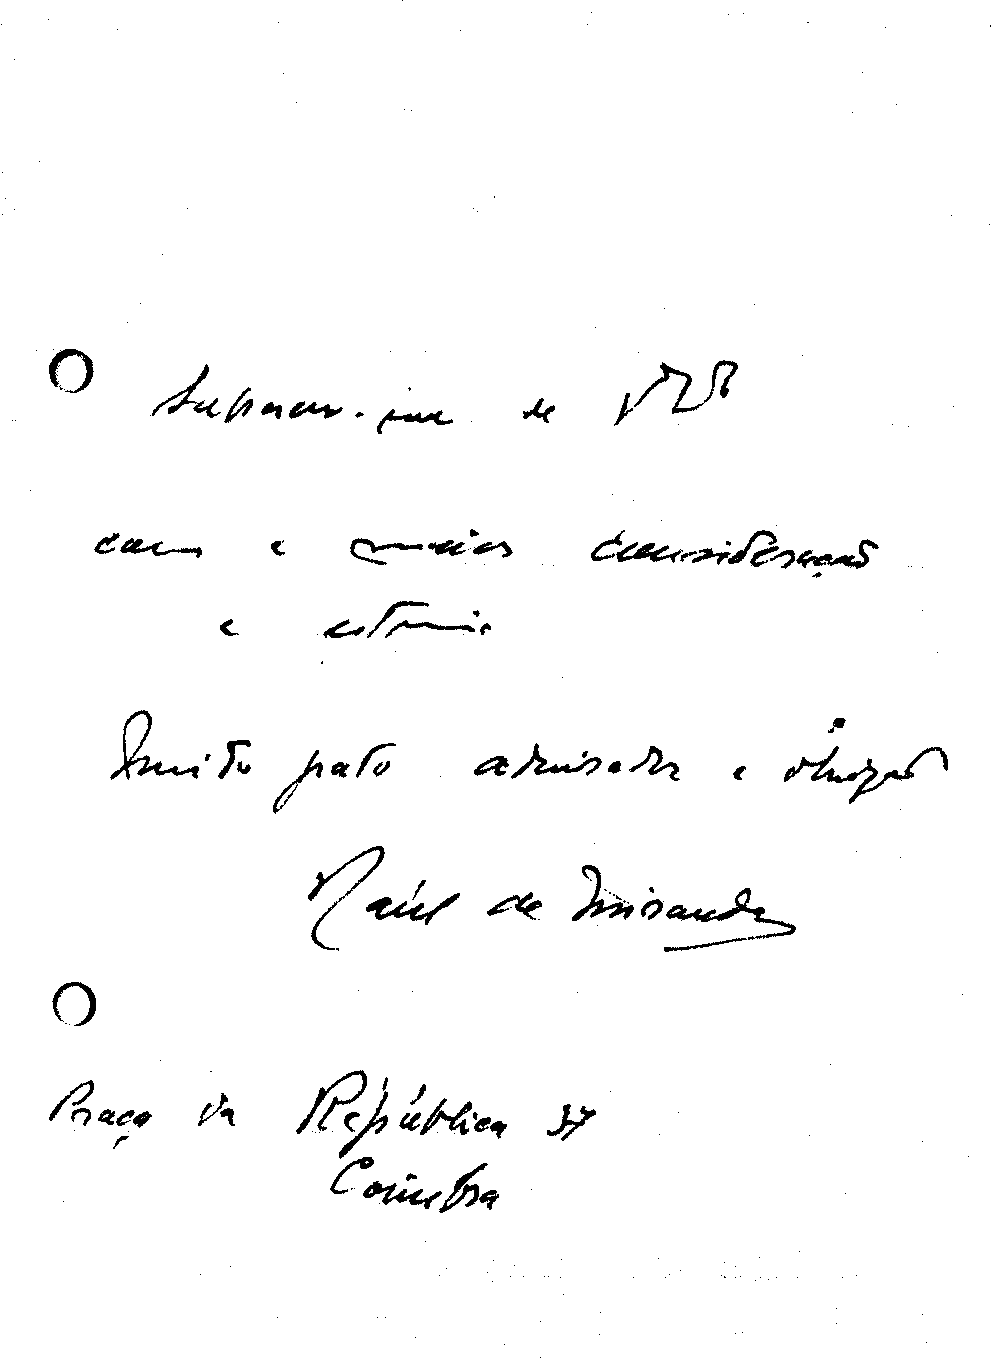 Subscrevo-me de V. Ex.ª
com a maior consideração
e estima
Muito grato admirador e obrigado
Raúl de Miranda
Praça da República 37
Coimbra